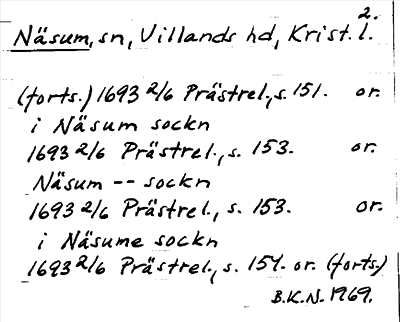 2.
Näsum, sn, Villands hd, Krist. l.
(forts.) 1693 2/6 Prästrel., s. 151. or.
i Näsum sockn
1693 2/6 Prästrel., s. 153. or.
Näsum -- sockn
1693 2/6 Prästrel., s. 153. or.
i Näsume sockn
1693 2/6 Prästrel., s. 154. or. (forts.)
B.K.N. 1969.